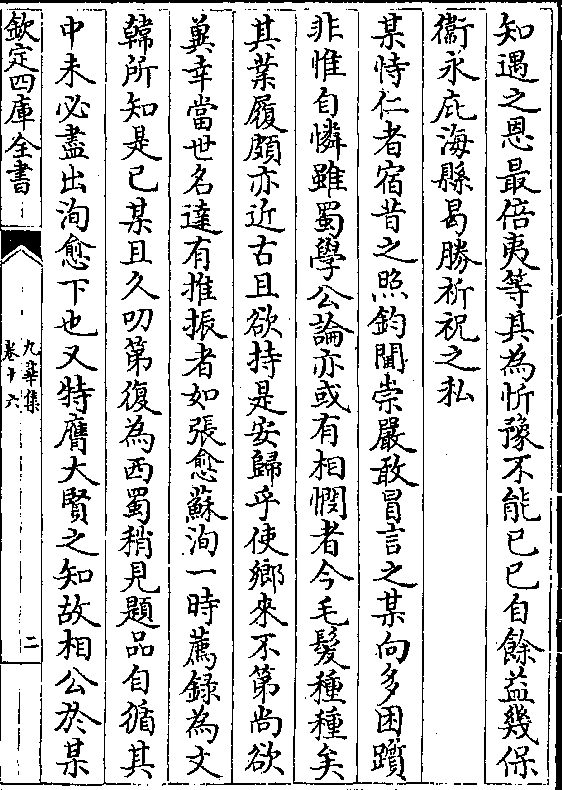 知遇之恩最倍夷等其為忻豫不能已已自餘益幾保
衞永庇海縣曷勝祈祝之私
某恃仁者宿昔之照鈞聞崇嚴敢冒言之某向多困躓
非惟自憐雖蜀學公論亦或有相憫者今毛髪種種矣
其業履頗亦近古且欲持是安歸乎使鄉來不第尚欲
冀幸當世名達有推振者如張愈蘇洵一時薦録為文
韓所知是已某且久叨第復為西蜀稍見題品自循其
中未必盡出洵愈下也又特膺大賢之知故相公於某
欽定四庫全書
九華集
卷十六
二